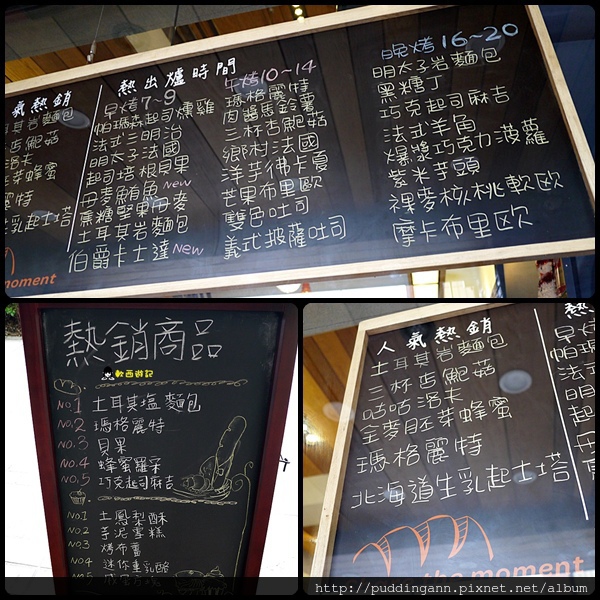 氣熱銷
耳其岩麵包
杏鮑菇
洛卡
芽蜂蜜
麗特
生乳起士塔
moment
熱出爐時間
早烤7~9
帕瑪森起司燻雞
法式三明治
明太子法國
起司培根貝果
丹麥鮪魚 New
焦糖堅果丹麥
土耳其岩麵包
伯爵卡士達 New
午烤10~14
瑪格麗特
肉醬馬鈴薯
三杯杏鮑菇
鄉村法國
洋芋佛卡夏
芒果布里歐
雙色吐司
義式披薩吐司
晚烤16~20
明太子岩麵包
黑糖丁
巧克起司麻吉
法式羊角
爆漿巧克力菠蘿
紫米芋頭
裸麥核桃軟歐
摩卡布里歐
熱銷商品
軟西遊記
NO.1 土耳其塩麵包
NO.2 瑪格麗特
NO.3 貝果
NO.4 蜂蜜羅宋
NO.5 巧克起司麻吉
NO.1 土鳳梨酥
NO.2 芋泥雪糕
NO.3 烤布蕾
NO.4 迷你重乳酪
NO.5
人氣熱銷
土耳其岩麵包
三杯杏鮑菇
咕咕洛卡
全麥胚芽蜂蜜
瑪格麗特
北海道生乳起士塔
the moment
熱
早烤
帕瑪
法式
明
起
http://puddingann.pixnet.net/album